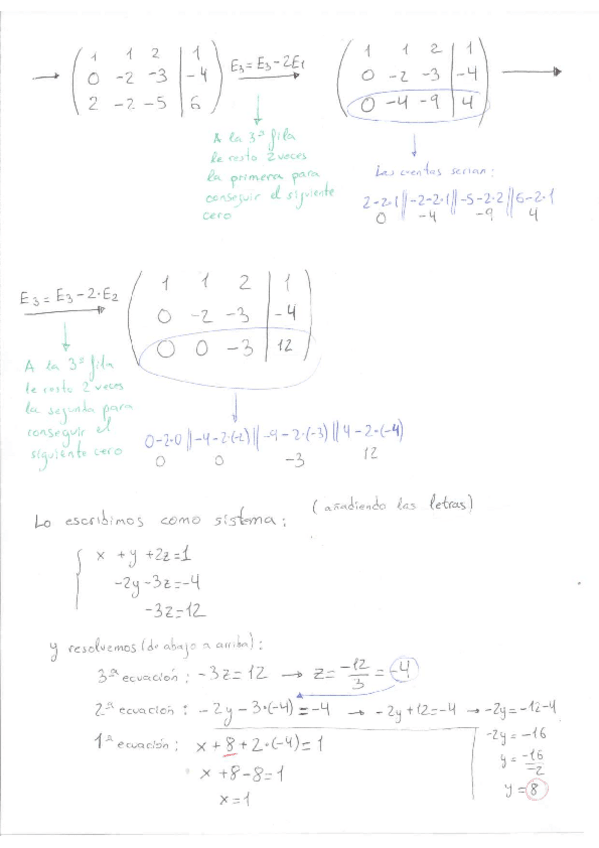 → ( 1 1 2 | 1 ) E₃=E₃-2E₁ ( 1 1 2 | 1 )
( 0 -2 -3 | -4 ) → ( 0 -2 -3 | -4 ) →
( 2 -2 -5 | 6 ) ( 0 -4 -9 | 4 )
A la 3ª fila
le resto 2 veces
la primera para
conseguir el siguiente
cero
Las cuentas serían:
2-2·1 || -2-2·1 || -5-2·2 || 6-2·1
0 -4 -9 4
E₃=E₃-2·E₂ → ( 1 1 2 | 1 )
( 0 -2 -3 | -4 )
( 0 0 -3 | 12 )
A la 3ª fila
le resto 2 veces
la segunda para
conseguir el
siguiente cero
0-2·0 || -4-2·(-2) || -9-2·(-3) || 4-2·(-4)
0 0 -3 12
Lo escribimos como sistema: (añadiendo las letras)
{ x +y +2z=1
-2y-3z=-4
-3z=12
y resolvemos (de abajo a arriba):
3ª ecuación: -3z=12 → z= -12/3 = -4
2ª ecuación: -2y-3·(-4)=-4 → -2y+12=-4 → -2y=-12-4
-2y=-16
y= -16/-2
y=8
1ª ecuación: x+8+2·(-4)=1
x+8-8=1
x=1